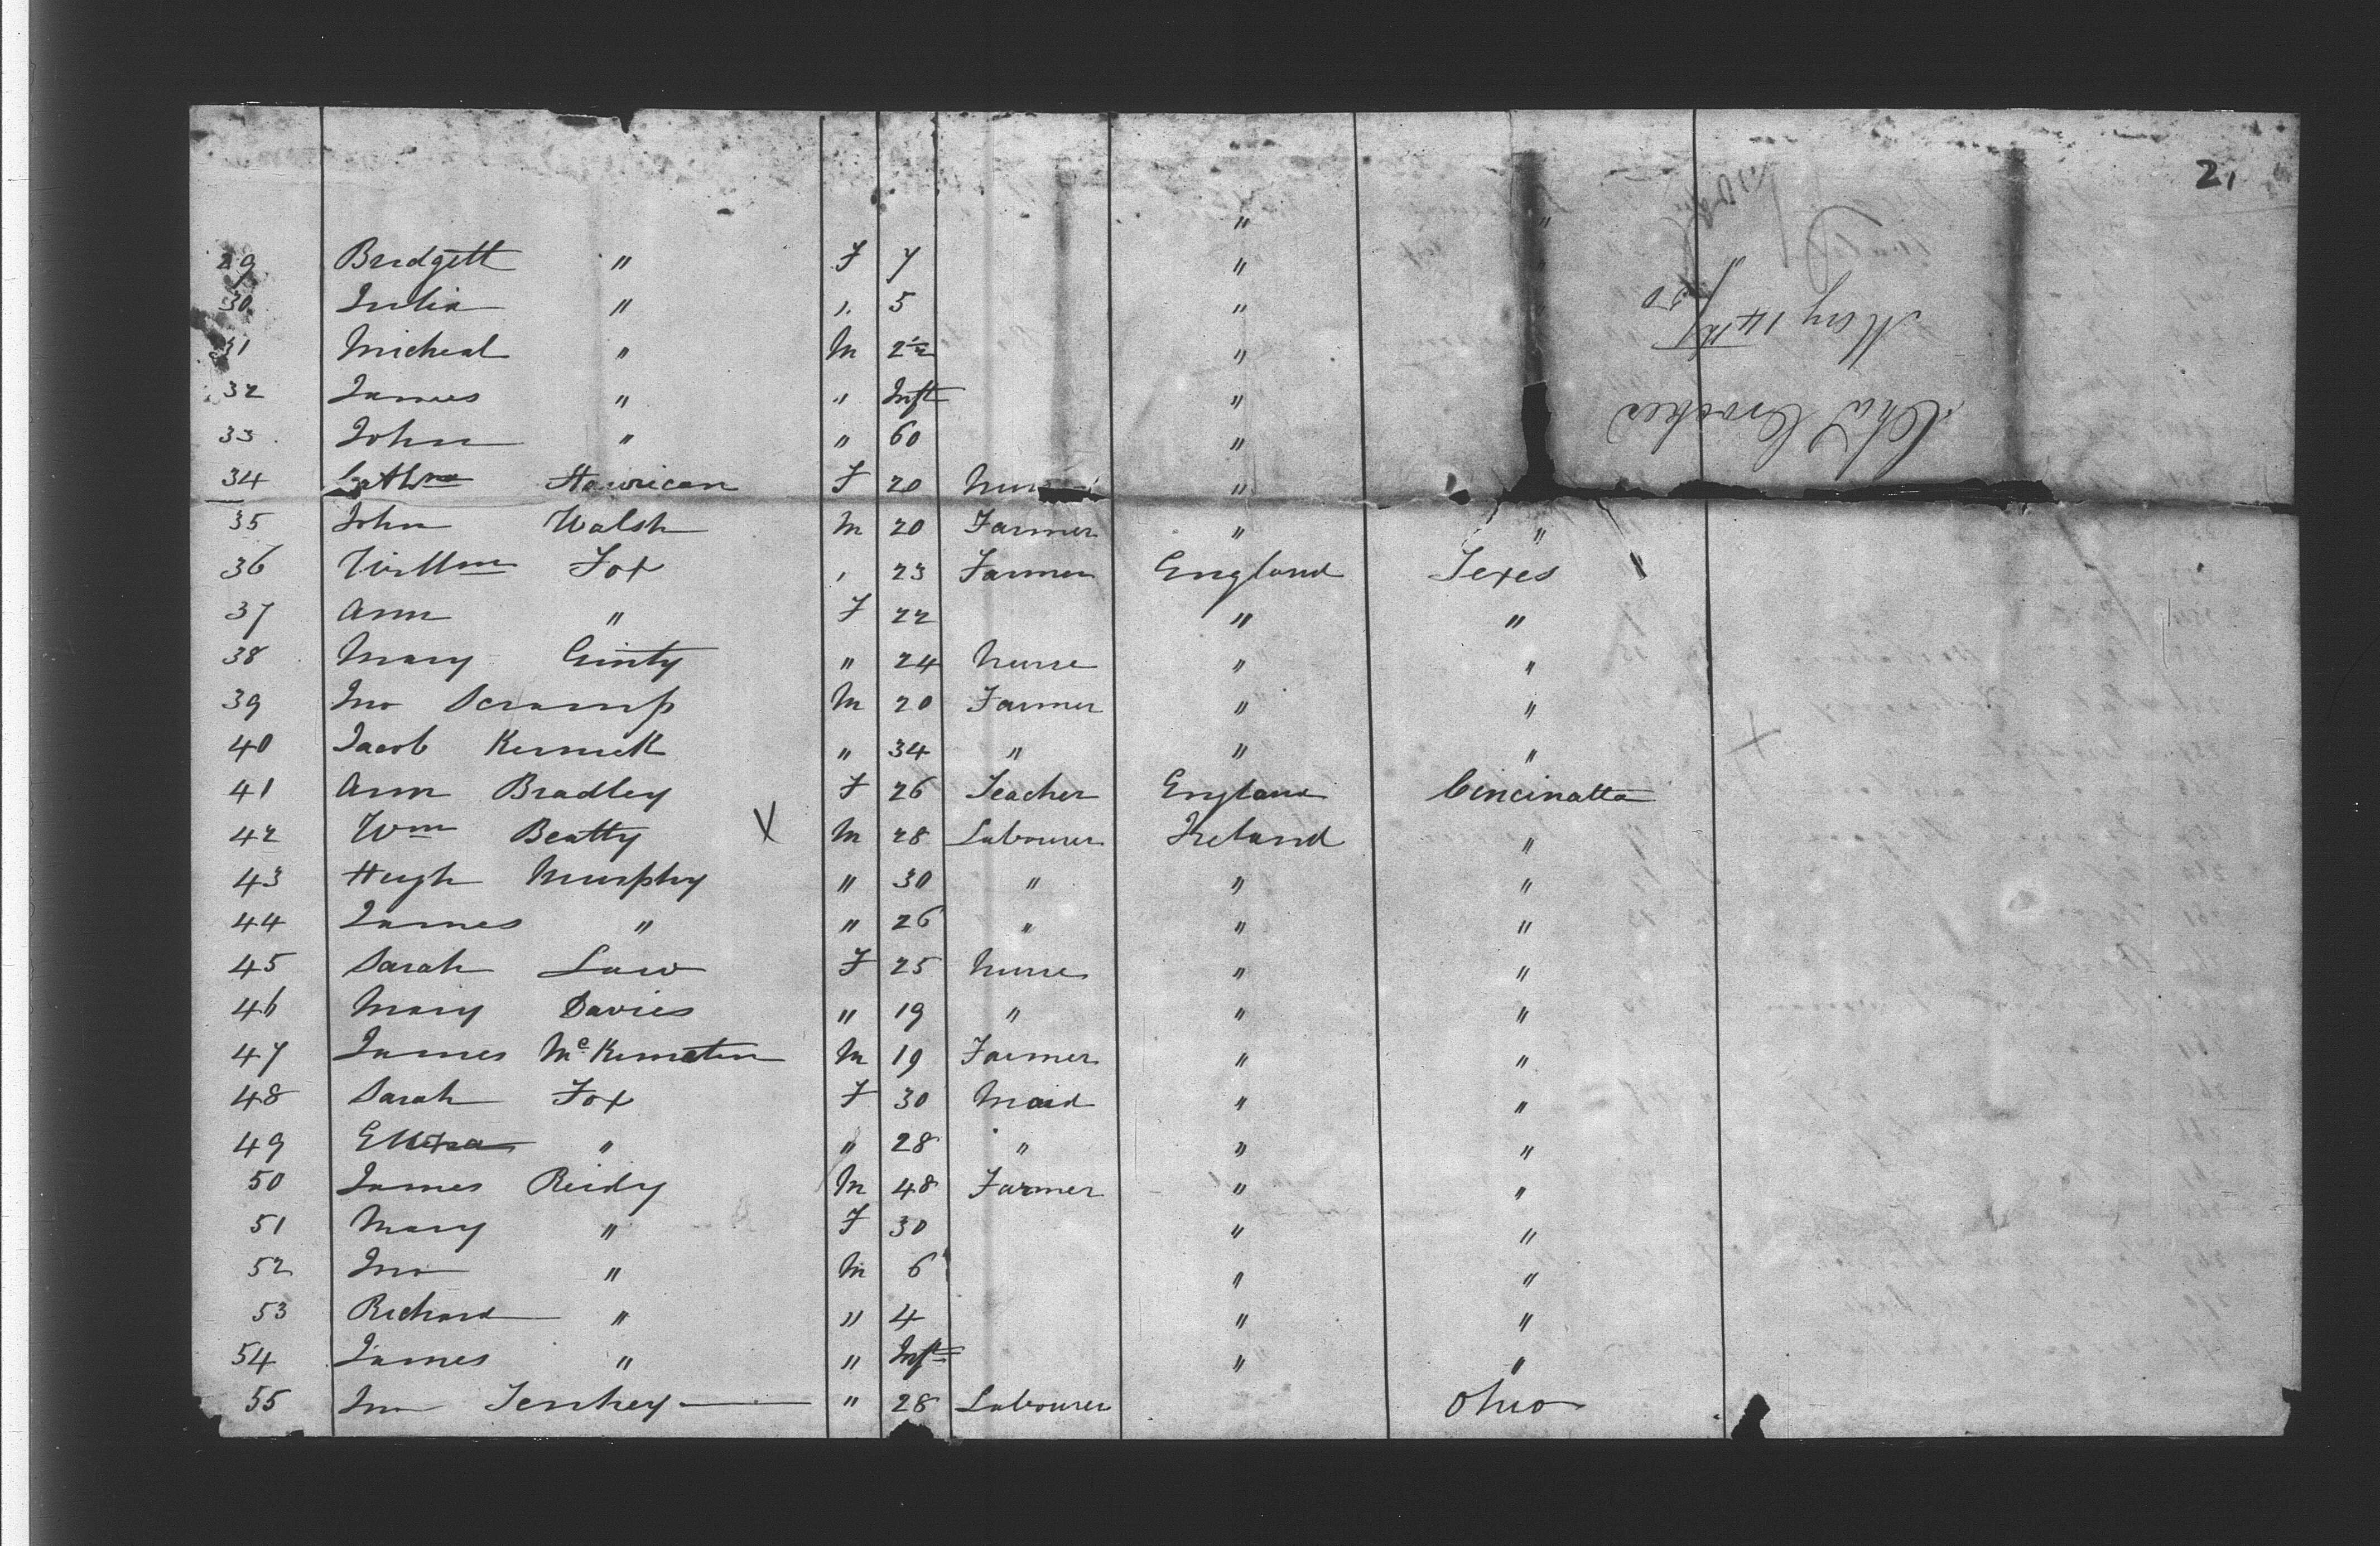 2,
" "
29 Bridgett " F 7 "
30 Julia " " 5 "
31 Micheal " M 2½ "
32 James " " Inft "
33 John " " 60 "
34 Cathne F 20 "
35 John Walsh M 20 Farmer " "
36 Willm Fox " 23 Farmer England Texes
37 Ann " F 22 " "
38 Mary Ginty " 24 Nurse " "
39 Jno M 20 Farmer " "
40 Jacob " 34 " " "
41 Ann Bradley F 26 Teacher England Cincinatta
42 Wm Beatty X M 28 Labourer Ireland "
43 Hugh Murphy " 30 " " "
44 James " " 26 " " "
45 Sarah Law F 25 Nurse " "
46 Mary Davies " 19 " " "
47 James M 19 Farmer " "
48 Sarah Fox F 30 Maid " "
49 " " 28 " " "
50 James Reidy M 48 Farmer " "
51 Mary " F 30 " "
52 Jno " M 6 " "
53 Richard " " 4 " "
54 James " " Inft " "
55 Jno " 28 Labourer Ohio
Chas Crooker
May 14th/50